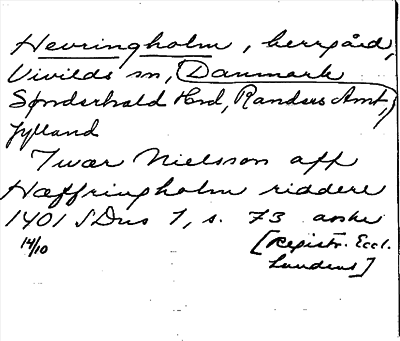 Hevringholm, herrgård,
Vivilds sn, Danmark
Sønderhald Hrd, Randers Amt,
Jylland
Iwar Nielsson aff
Hæffringholm riddere
1401 SDns 1, s. 73 avskr
14/10 [Registr. Eccl.
Lundens]